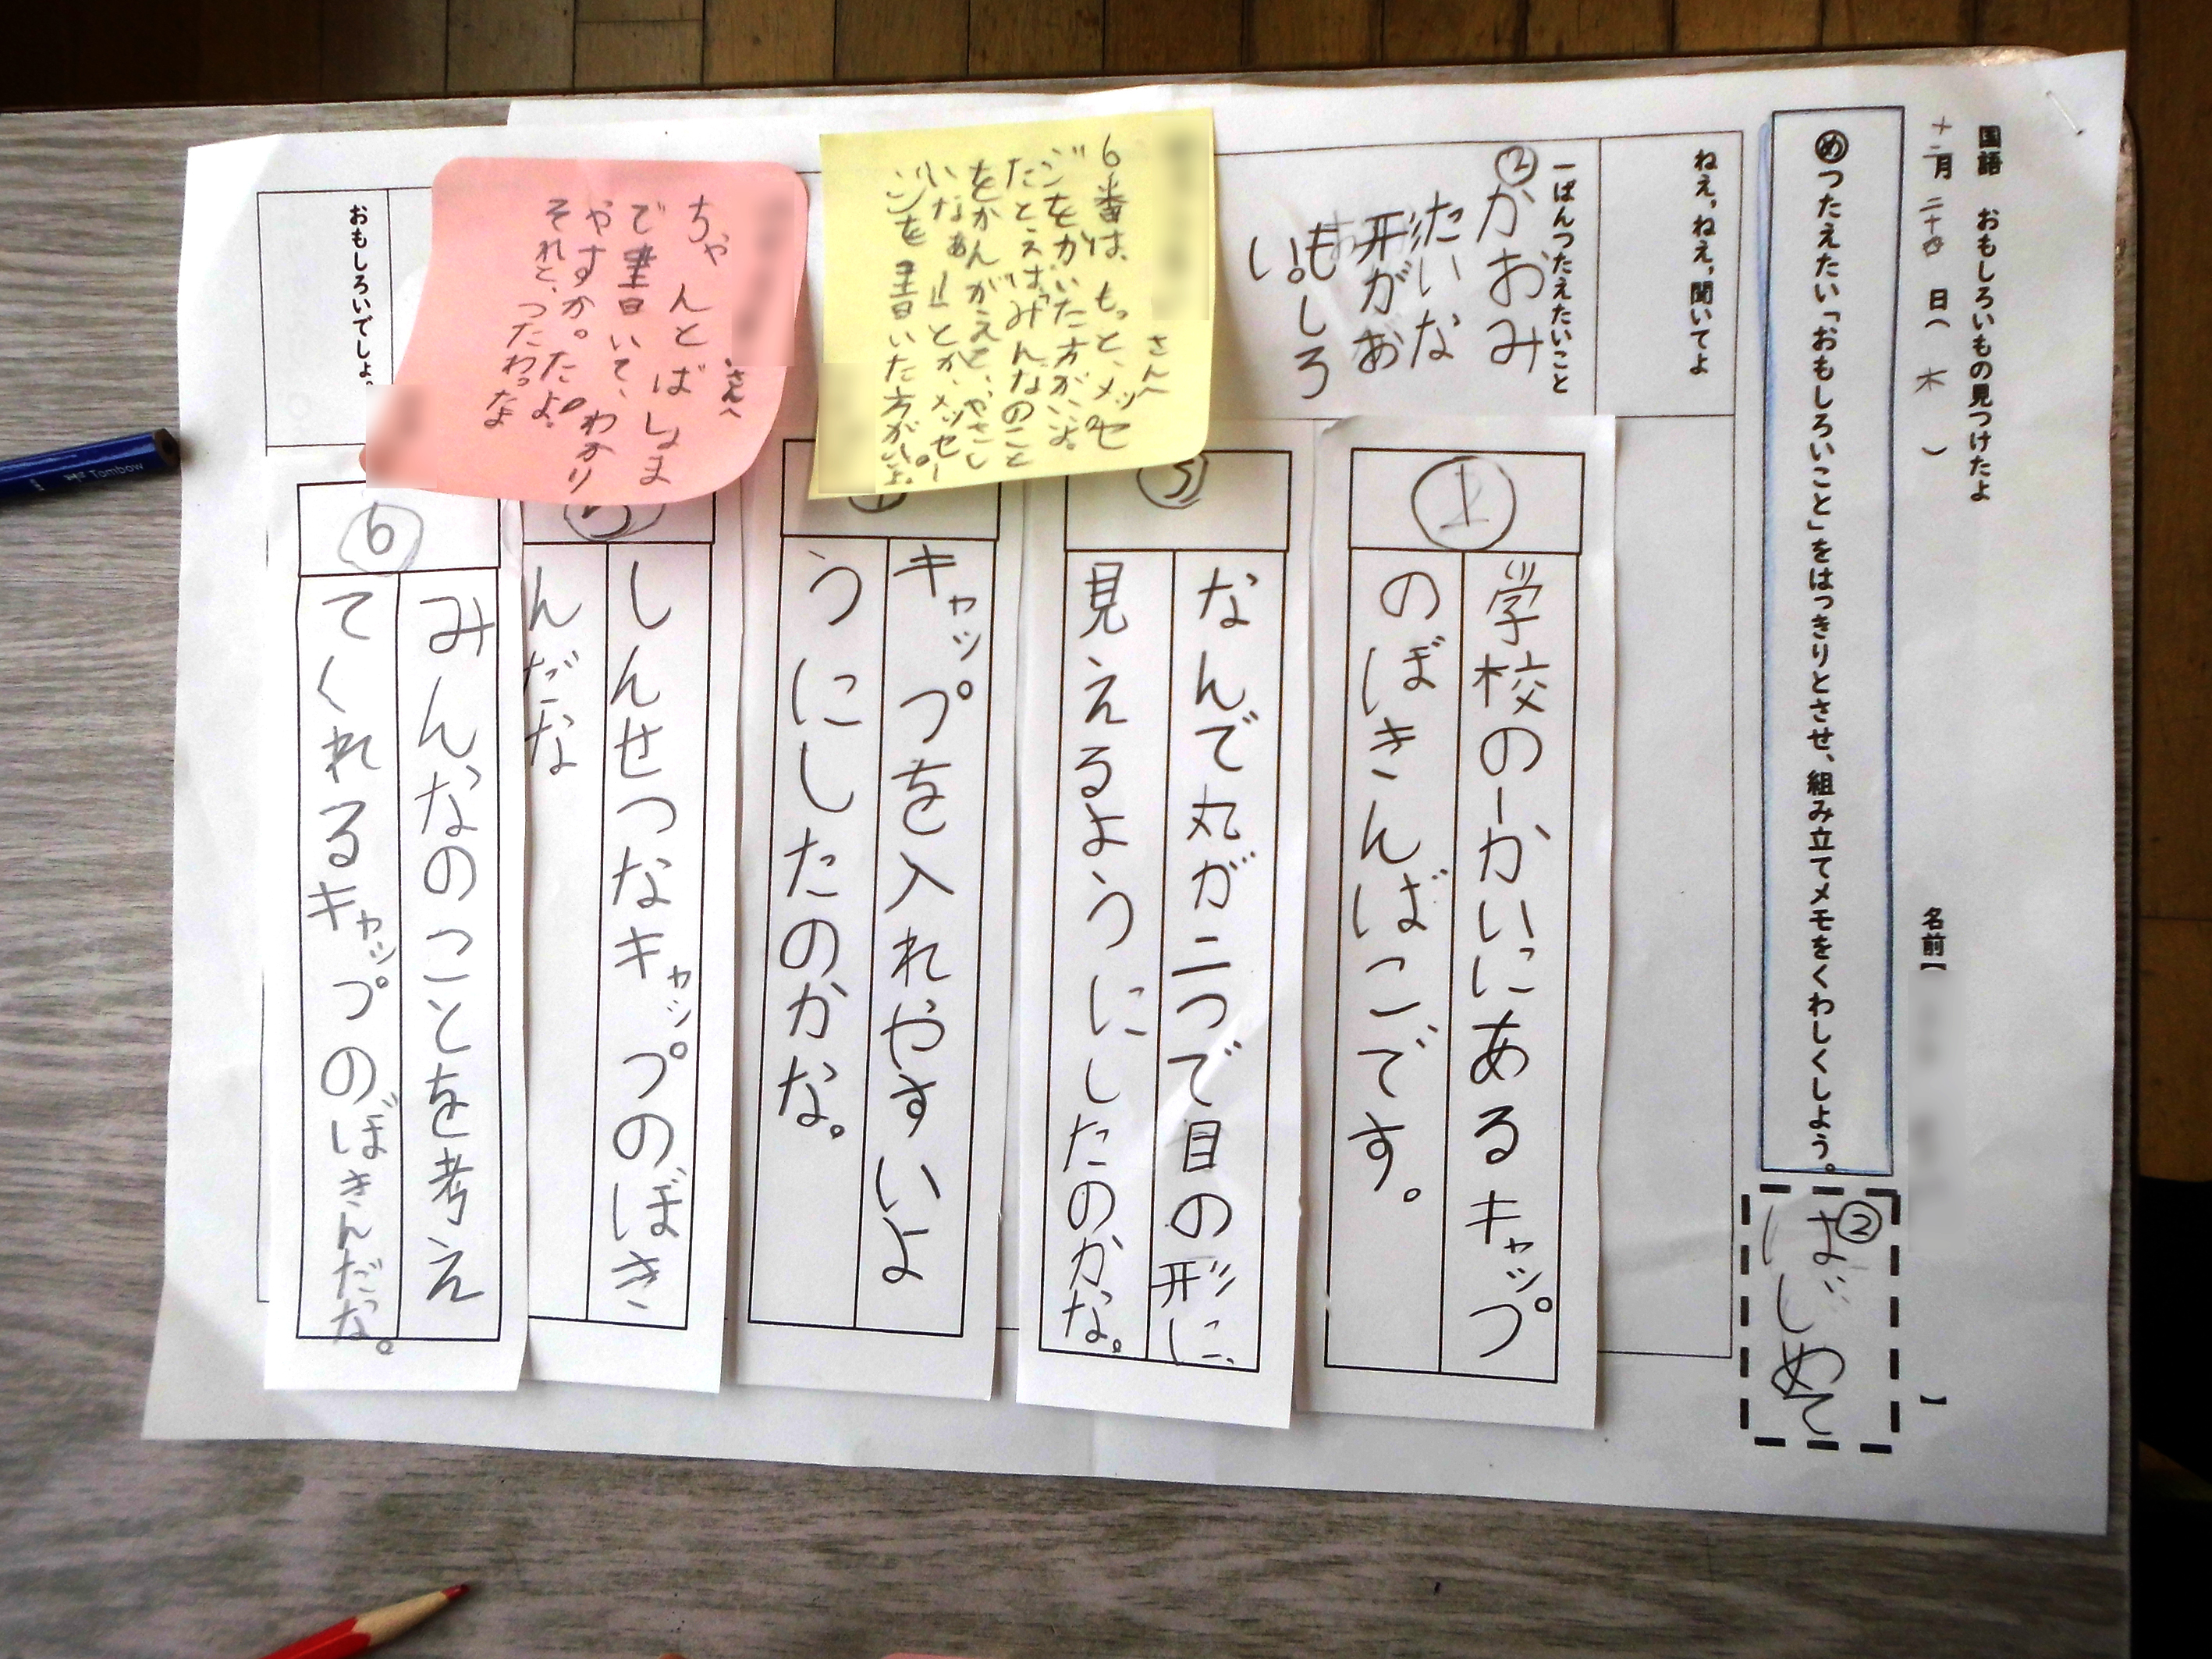 国語 おもしろいもの見つけたよ
十二月 二十 日( 木 )
名前【 】
めつたえたい「おもしろいこと」をはっきりとさせ、組み立てメモをくわしくしよう。
②
はじめて
ねえ、ねえ、聞いてよ
一ばんつたえたいこと
②かおみ
たいな
形がお
もしろ
い。
①
学校の一かいにあるキャップ
のぼきんばこです。
3
なんで丸が二つで目の形に、
見えるようにしたのかな。
キャップを入れやすいよ
うにしたのかな。
5
しんせつなキャップのぼき
んだな
⑥
みんなのことを考え
てくれるキャップのぼきんだな。
さんへ
6番は、もっと、メッセ
ジをかいた方がいいよ。
たとえば「みんなのこと
をかんがえて、やさし
いなぁ」とか、メッセー
ジを書いた方がいいよ。
さんへ
ちゃんとばしょま
で書いて、わかり
やすか。たよ。
それと、つたわっな
おもしろいでしょ。
Tombow